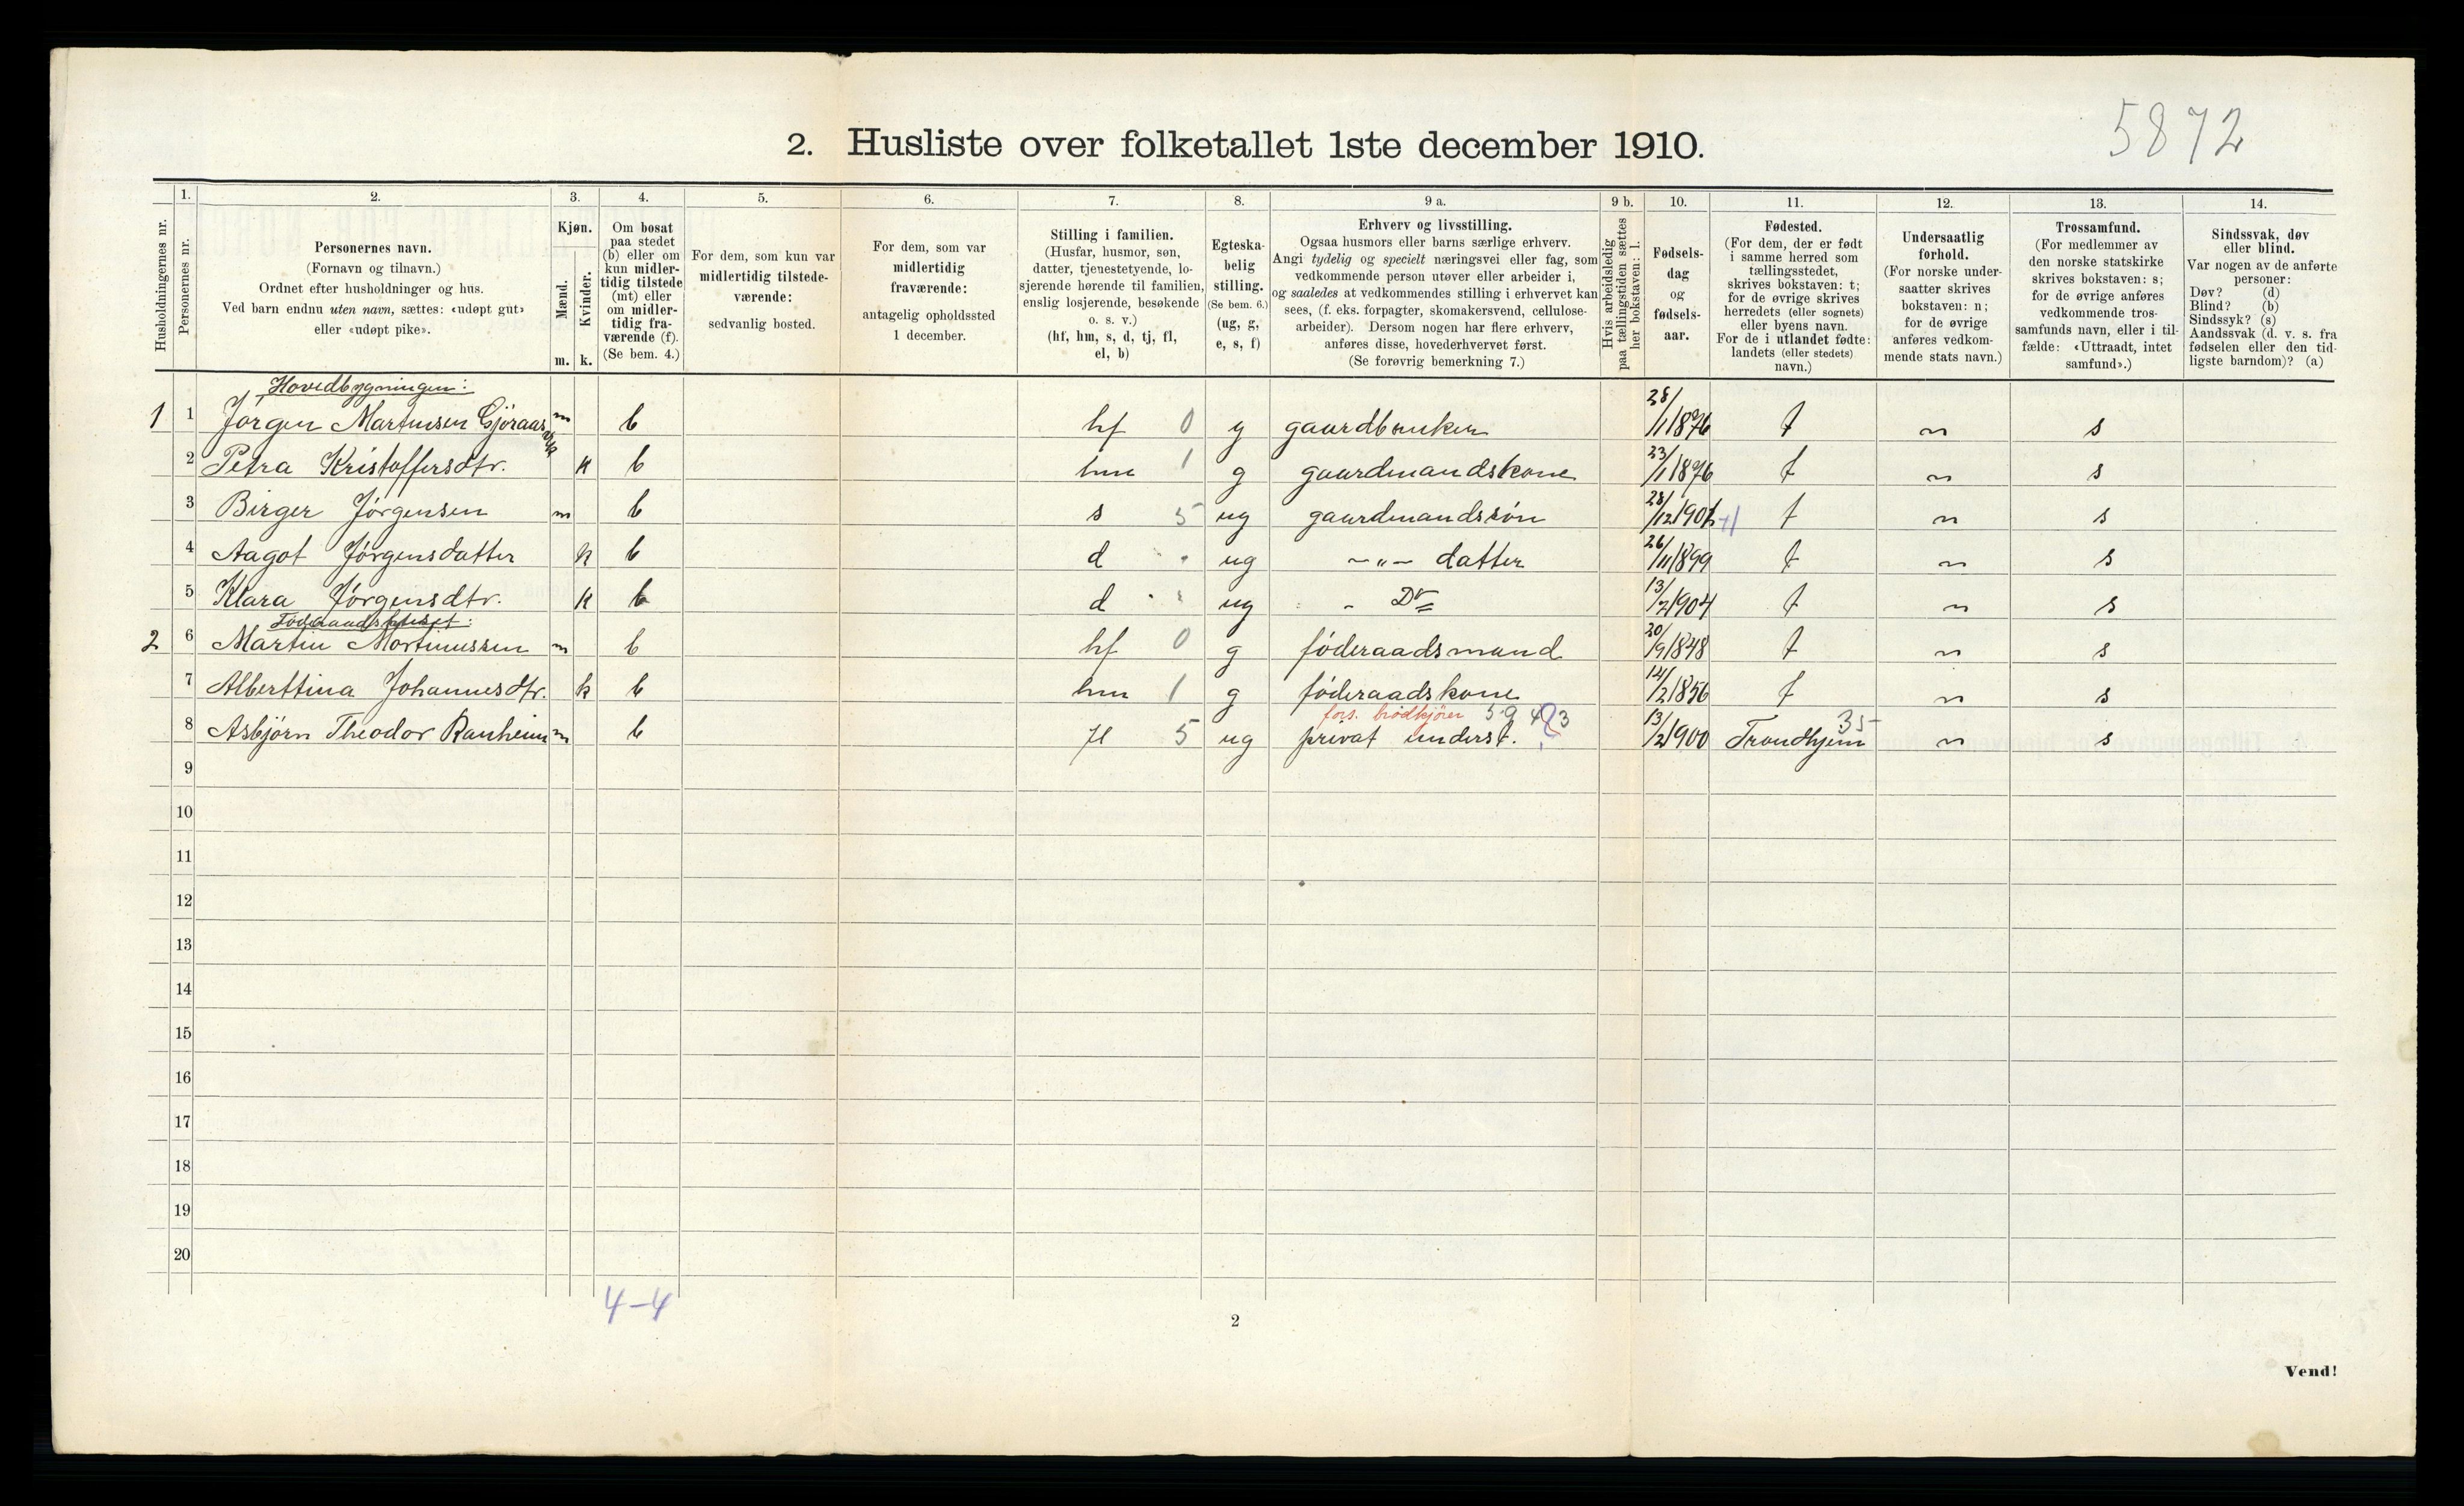 5872
2. Husliste over folketallet 1ste december 1910.
Husholdningernes nr.
1.
Personernes nr.
2.
Personernes navn.
(Fornavn og tilnavn.)
Ordnet efter husholdninger og hus.
Ved barn endnu uten navn, sættes: «udøpt gut»
eller «udøpt pike».
3.
Kjøn.
Mænd.
Kvinder.
m. k.
4.
Om bosat
paa stedet
(b) eller om
kun midler-
tidig tilstede
(mt) eller
om midler-
tidig fra-
værende (f).
(Se bem. 4.)
5.
For dem, som kun var
midlertidig tilstede-
værende:
sedvanlig bosted.
6.
For dem, som var
midlertidig
fraværende:
antagelig opholdssted
1 december.
7.
Stilling i familien.
(Husfar, husmor, søn,
datter, tjenestetyende, lo-
sjerende hørende til familien,
enslig losjerende, besøkende
o. s. v.)
(hf, hm, s, d, tj, fl,
el, b)
8.
Egteska-
belig
stilling.
(Se bem. 6.)
(ug, g,
e, s, f)
9 a.
Erhverv og livsstilling.
Ogsaa husmors eller barns særlige erhverv.
Angi tydelig og specielt næringsvei eller fag, som
vedkommende person utøver eller arbeider i,
og saaledes at vedkommendes stilling i erhvervet kan
sees, (f. eks. forpagter, skomakersvend, cellulose-
arbeider). Dersom nogen har flere erhverv,
anføres disse, hovederhvervet først.
(Se forøvrig bemerkning 7.)
9 b.
Hvis arbeidsledig
paa tællingstiden sættes
her bokstaven: l.
10.
Fødsels-
dag
og
fødsels-
aar.
11.
Fødested.
(For dem, der er født
i samme herred som
tællingsstedet,
skrives bokstaven: t;
for de øvrige skrives
herredets (eller sognets)
eller byens navn.
For de i utlandet fødte:
landets (eller stedets)
navn.)
12.
Undersaatlig
forhold.
(For norske under-
saatter skrives
bokstaven: n;
for de øvrige
anføres vedkom-
mende stats navn.)
13.
Trossamfund.
(For medlemmer av
den norske statskirke
skrives bokstaven: s;
for de øvrige anføres
vedkommende tros-
samfunds navn, eller i til-
fælde: «Uttraadt, intet
samfund».)
14.
Sindssvak, døv
eller blind.
Var nogen av de anførte
personer:
Døv? (d)
Blind? (b)
Sindssyk? (s)
Aandssvak (d. v. s. fra
fødselen eller den tid-
ligste barndom)? (a)
Hovedbygningen:
1 1 Jørgen Martinsen Gjøraas m b hf 0 g gaardbruker 28/11876 t n s
2 Petra Kristoffersdtr. k b hm 1 g gaardmandskone 23/11876 t n s
3 Birger Jørgensen m b s 5 ug gaardmandssøn 28/12 1901 t n s
4 Aagot Jørgensdatter k b d " ug -"- datter 26/11 1899 t n s
5 Klara Jørgensdtr. k b d " ug - Do 13/2 1904 t n s
Føderaadshuset:
2 6 Martin Mortinussen m b hf 0 g føderaadsmand 20/9 1848 t n s
7 Alberttina Johannesdtr. k b hm 1 g føderaadskone 14/2 1856 t n s
fors. brødkjører 59 4 3 35
8 Asbjørn Theodor Ranheim m b fl 5 ug privat underst. 13/2 1900 Trondhjem n s
9
10
11
12
13
14
15
16
17
18
19
20
4-4
2
Vend!